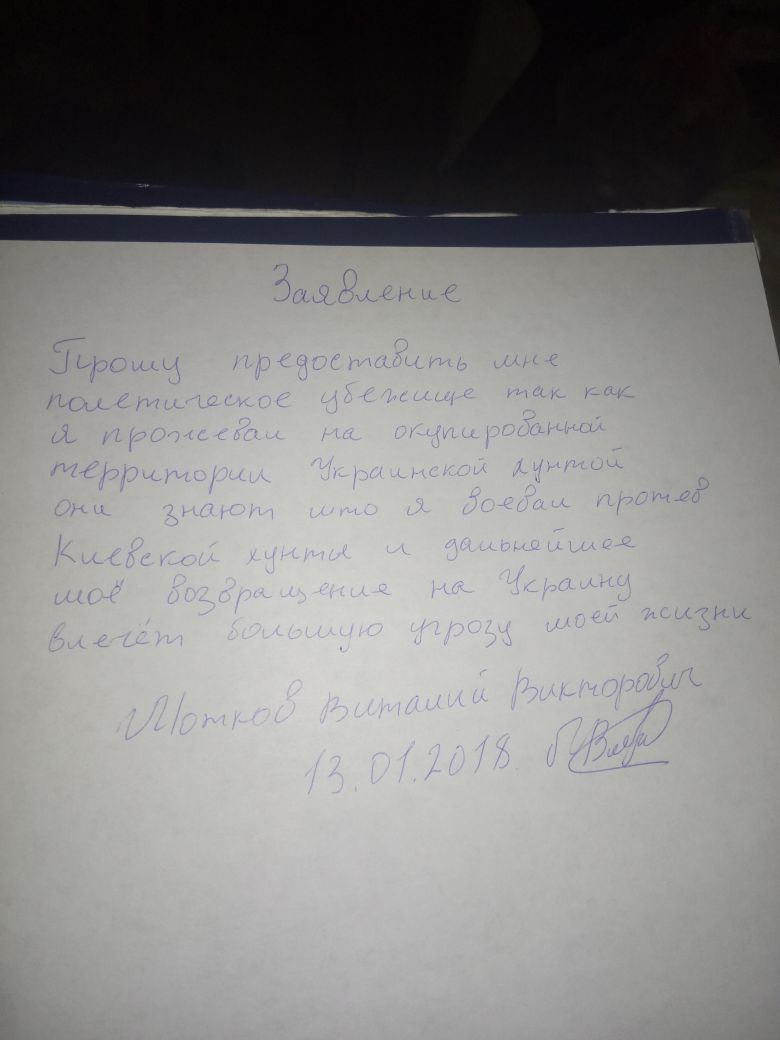 Заявление
Прошу предоставить мне
полетическое убежище так как
я прожевал на окупированной
территории Украинской хунтой
они знают што я воевал протев
Киевской хунты и дальнейшее
моё возвращение на Украину
влечёт большую угрозу моей жизни
Виталий Викторович
13.01.2018.